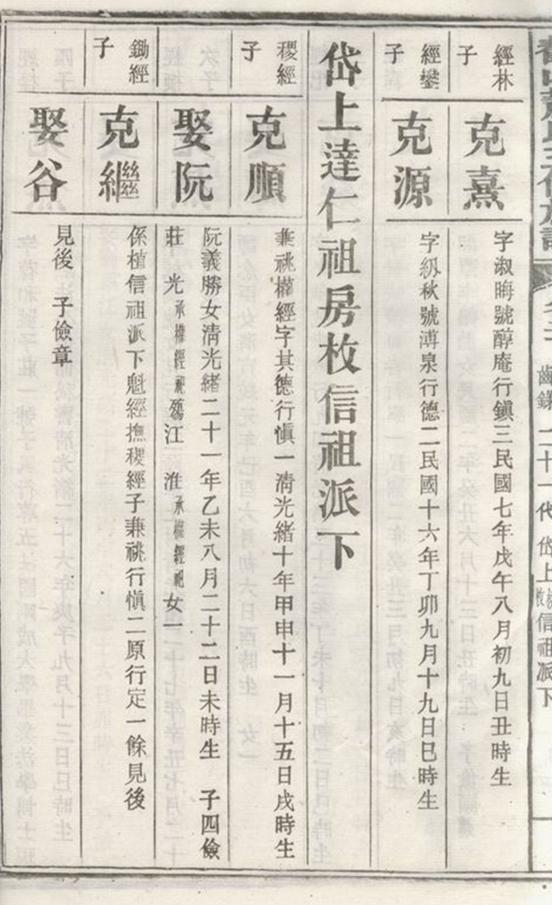 經林
子
克熹
字淑晦號醇庵行鎮三民國七年戊午八月初九日丑時生
經鑾
子
克源
字級秋號溥泉行德二民國十六年丁卯九月十九日巳時生
岱上達仁祖房枚信祖派下
稷經
子
克順
兼祧權經字其德行愼一淸光緒十年甲申十一月十五日戌時生
娶阮
阮義勝女淸光緒二十一年乙未八月二十二日未時生 子四儉
莊 光承權經祀殤江 淮承權經祀女一
鋤經
子
克繼
係植信祖派下魁經撫稷經子兼祧行愼二原行定一餘見後
娶谷
見後 子儉章
二十一代 岱上 信祖派下